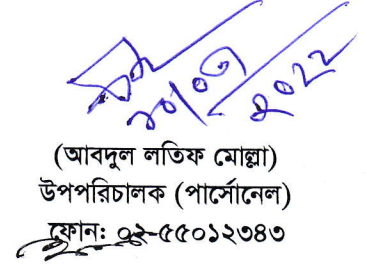 ২০/০৩/২০২২
(আবদুল লতিফ মোল্লা)
উপপরিচালক (পার্সোনেল)
ফোন: ০২-৫৫০১২৩৪৩